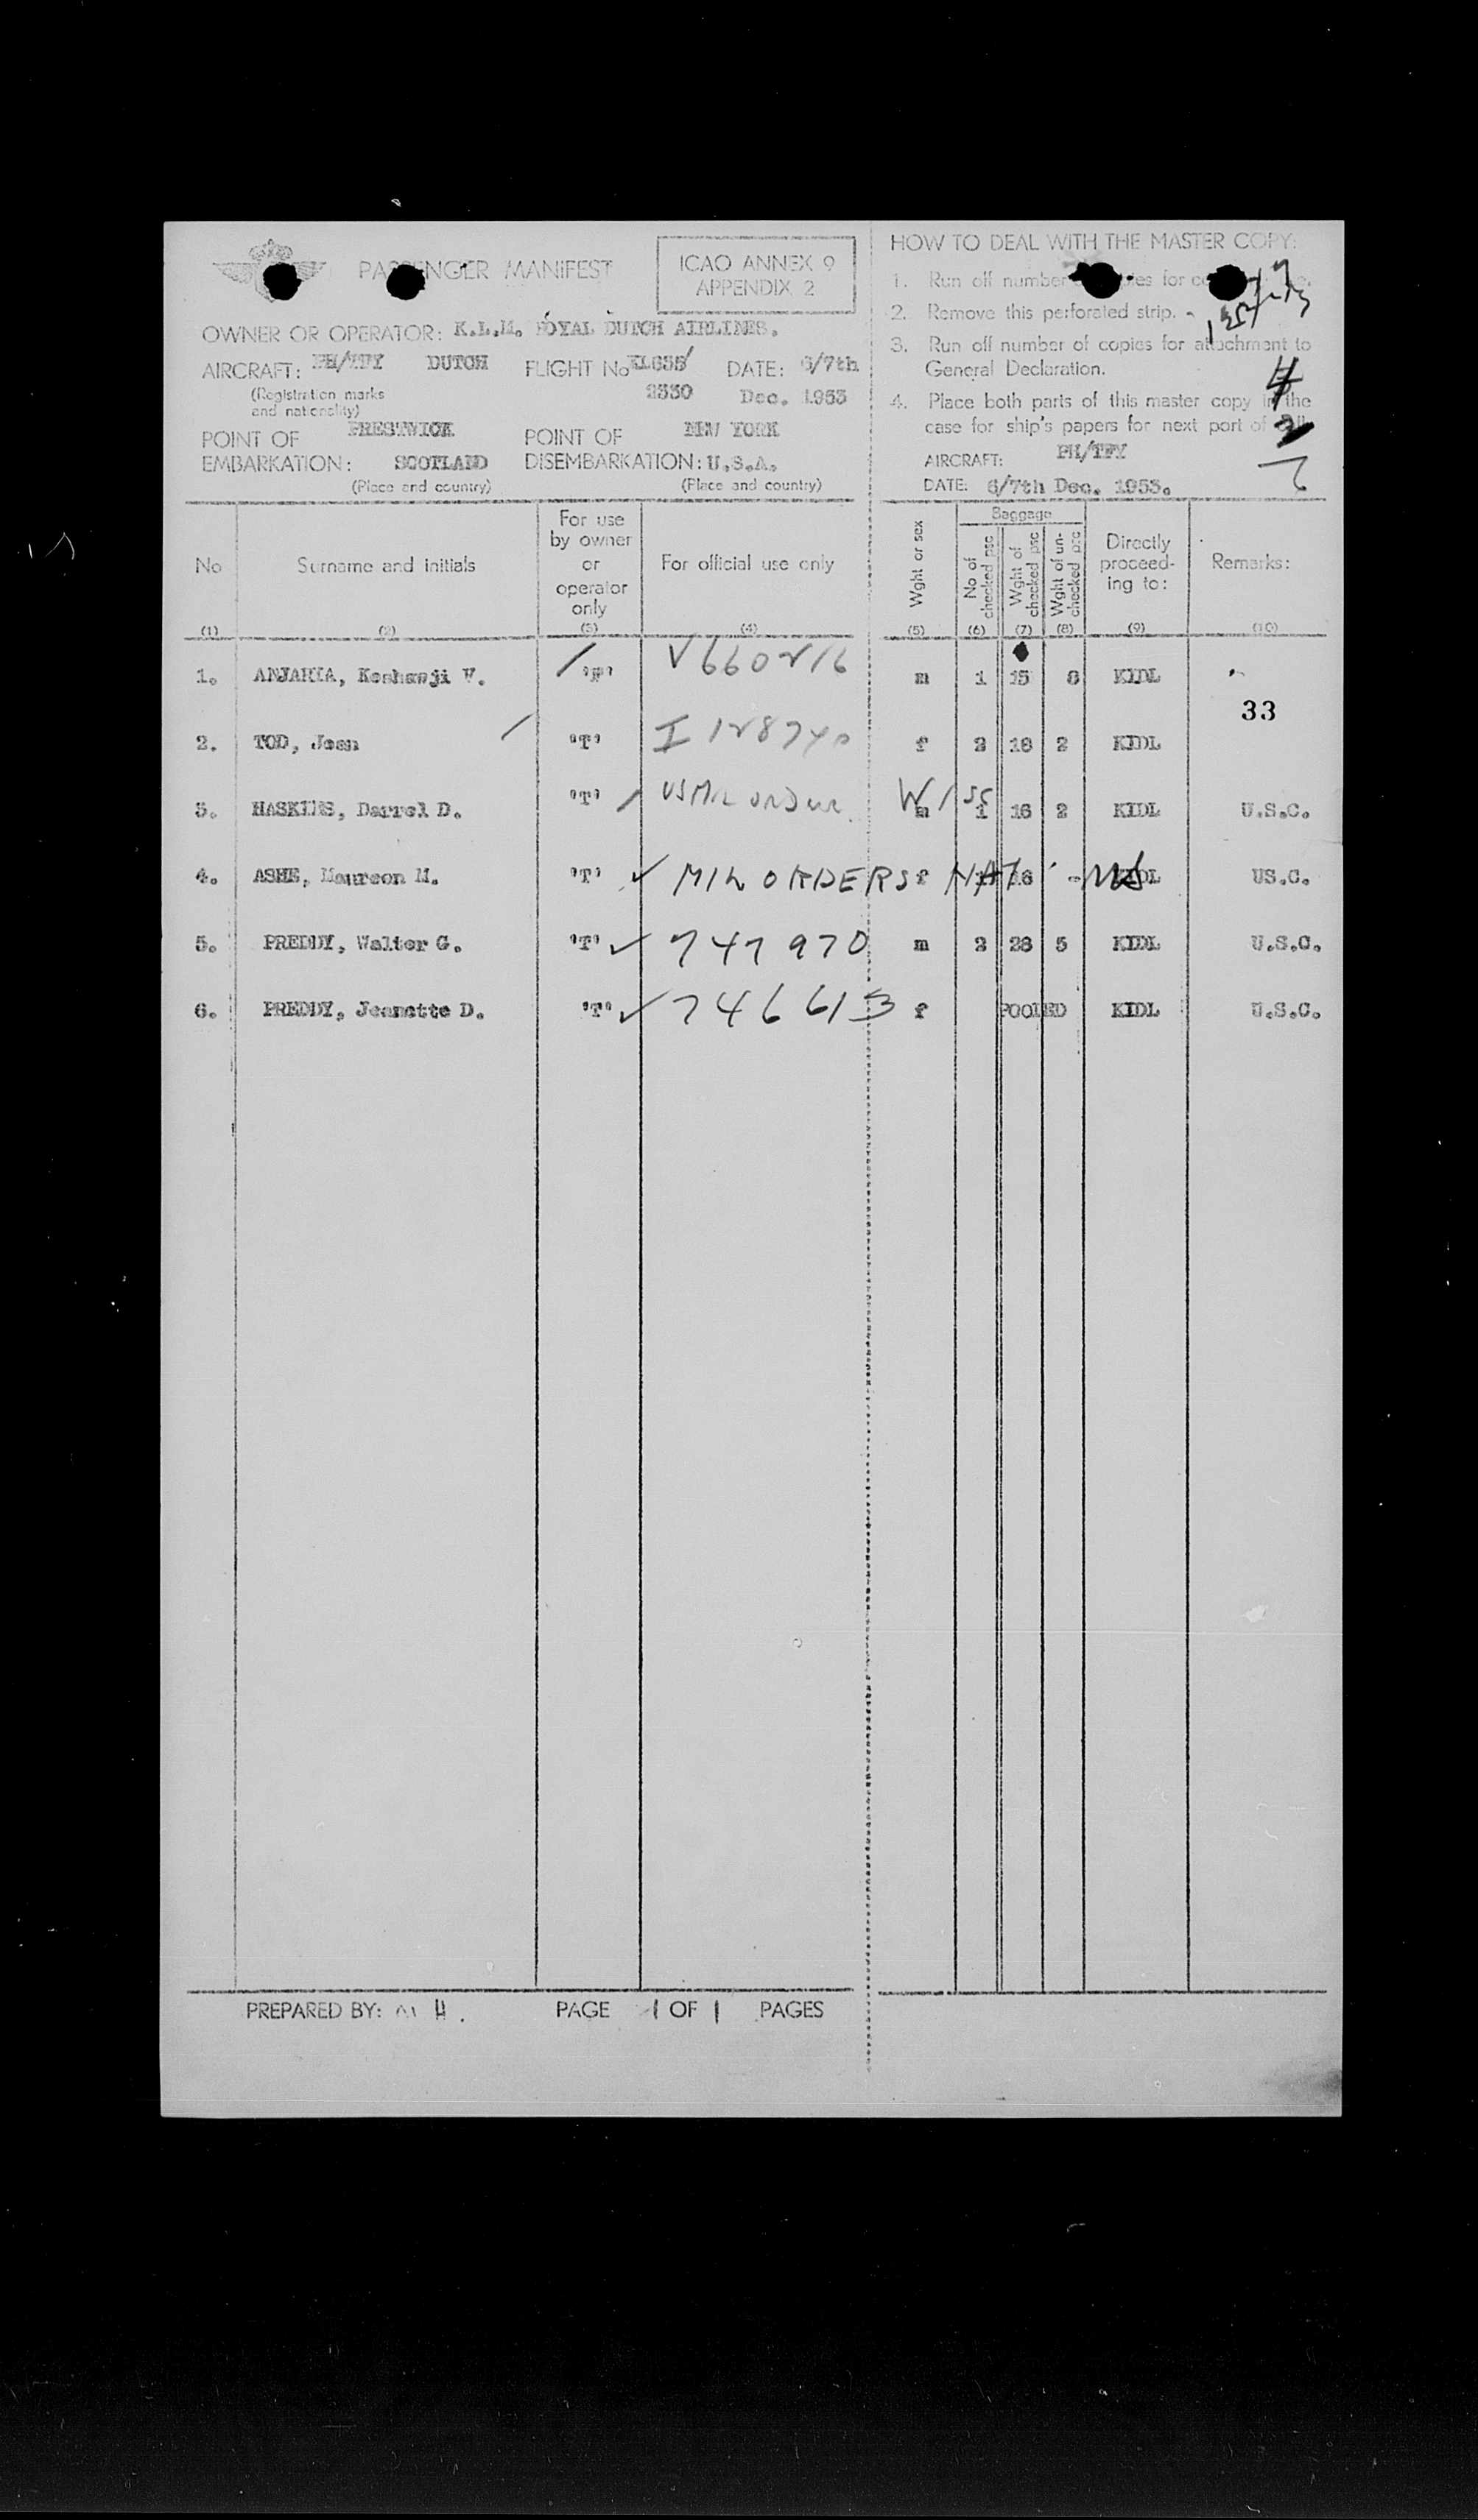 PASSENGER MANIFEST
ICAO ANNEX 9
APPENDIX 2
OWNER OR OPERATOR: K.L.M. ROYAL DUTCH AIRLINES.
AIRCRAFT: PH/TFY DUTCH FLIGHT No KL633/ DATE: 6/7th
(Registration marks 2330 Dec. 1953
and nationality)
POINT OF PRESTWICK POINT OF NEW YORK
EMBARKATION: SCOTLAND DISEMBARKATION: U.S.A.
(Place and country) (Place and country)
No Surname and initials For use by owner or operator only For official use only
(1) (2) (3) (4)
1. ANJARIA, Keshavji V. V660216
2. TOD, Jean "T" I 128740
3. HASKINS, Darrel D. "T" US MIL ORDER
4. ASHE, Maureen M. "T" MIL ORDERS
5. PREDDY, Walter G. "T" 747970
6. PREDDY, Jeanette D. "T" 746613
PREPARED BY: M H. PAGE 1 OF 1 PAGES
HOW TO DEAL WITH THE MASTER COPY:
1. Run off number
2. Remove this perforated strip.
3. Run off number of copies for attachment to
General Declaration.
4. Place both parts of this master copy in the
case for ship's papers for next port of
AIRCRAFT: PH/TFY
DATE: 6/7th Dec. 1953.
Wght or sex Baggage No of checked psc Wght of checked psc Wght of un-checked psc Directly proceed-ing to: Remarks:
(5) (6) (7) (8) (9) (10)
m 1 15 8 KIDL
33
f 2 18 2 KIDL
m 1 16 2 KIDL U.S.C.
f 16 KIDL US.C.
m 2 28 5 KIDL U.S.C.
f POOLED KIDL U.S.C.